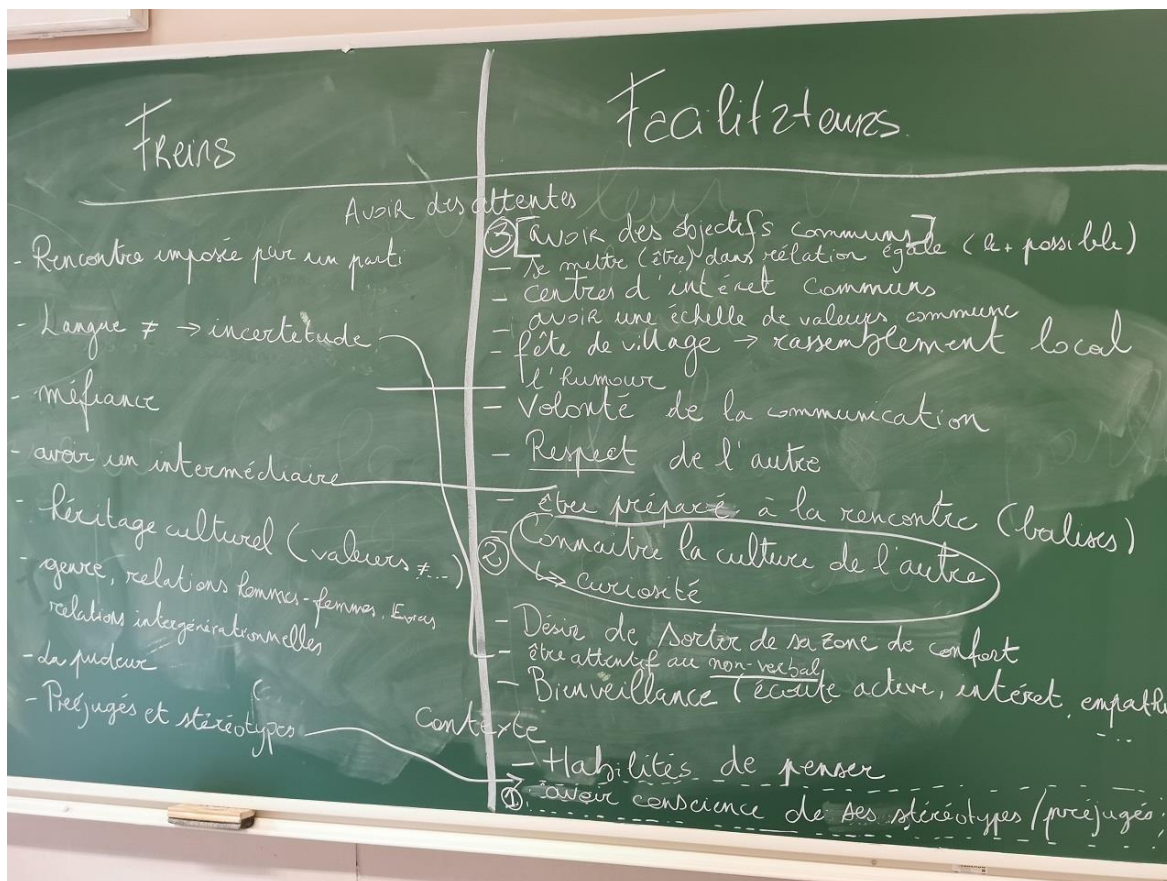 Freins
Avoir des attentes
- Rencontre imposée par un parti
- Langue ≠ → incertetude
- méfiance
- avoir un intermédiaire
- héritage culturel (valeurs ≠...)
- genre, relations hommes-femmes,
relations intergénérationnelles
- La pudeur
- Préjugés et stéréotypes
Contexte
Facilitateurs
③ [avoir des objectifs communs]
- se mettre (être) dans rélation égale (le + possible)
- centres d'intéret communs
avoir une échelle de valeurs commune
- fête de village → rassemblement local
l'humour
- Volonté de la communication
- Respect de l'autre
- être préparé à la rencontre (balises)
② - Connaitre la culture de l'autre
↳ curiosité
- Désir de sortir de sa zone de confort
- être attentif au non-verbal
- Bienveillance (écoute active, intéret, empathie
...
- Habilités de penser
① avoir conscience de ses stéréotypes/préjugés